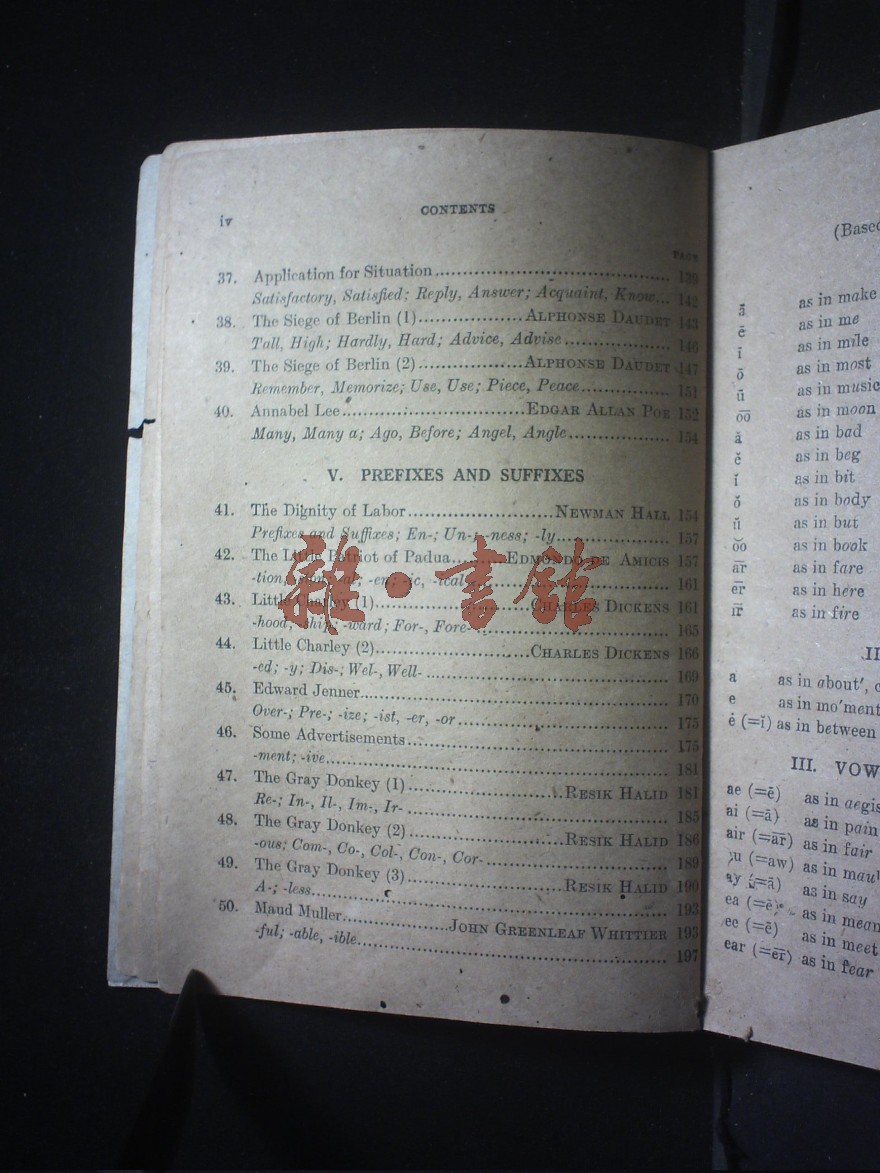 iv
CONTENTS
PAGE
37. Application for Situation 139
Satisfactory, Satisfied; Reply, Answer; Acquaint, Know 142
38. The Siege of Berlin (1) ALPHONSE DAUDET 143
Tall, High; Hardly, Hard; Advice, Advise 146
39. The Siege of Berlin (2) ALPHONSE DAUDET 147
Remember, Memorize; Use, Use; Piece, Peace 151
40. Annabel Lee EDGAR ALLAN POE 152
Many, Many a; Ago, Before; Angel, Angle 154
V. PREFIXES AND SUFFIXES
41. The Dignity of Labor NEWMAN HALL 154
Prefixes and Suffixes; En-; Un-, -ness; -ly 157
42. The Little Patriot of Padua EDMONDO DE AMICIS 157
-tion, -sion; -al; -en; -ic, -ical 161
43. Little Charley (1) CHARLES DICKENS 161
-hood, -ship; -ward; For-, Fore- 165
44. Little Charley (2) CHARLES DICKENS 166
-ed; -y; Dis-; Wel-, Well- 169
45. Edward Jenner 170
Over-; Pre-; -ize; -ist, -er, -or 175
46. Some Advertisements 175
-ment; -ive 181
47. The Gray Donkey (1) RESIK HALID 181
Re-; In-, Il-, Im-, Ir- 185
48. The Gray Donkey (2) RESIK HALID 186
-ous; Com-, Co-, Col-, Con-, Cor- 189
49. The Gray Donkey (3) RESIK HALID 190
A-; -less 193
50. Maud Muller JOHN GREENLEAF WHITTIER 193
-ful; -able, -ible 197
雜·書館
(Based
ā as in make
ē as in me
ī as in mile
ō as in most
ū as in music
o͞o as in moon
ă as in bad
ĕ as in beg
ĭ as in bit
ŏ as in body
ŭ as in but
o͝o as in book
ār as in fare
ēr as in here
īr as in fire
II
a as in about',
e as in mo'ment
ė (=ĭ) as in between
III. VOW
ae (=ē) as in aegis
ai (=ā) as in pain
air (=ār) as in fair
au (=aw) as in maul
ay (=ā) as in say
ea (=ē) as in mean
ee (=ē) as in meet
ear (=ēr) as in fear